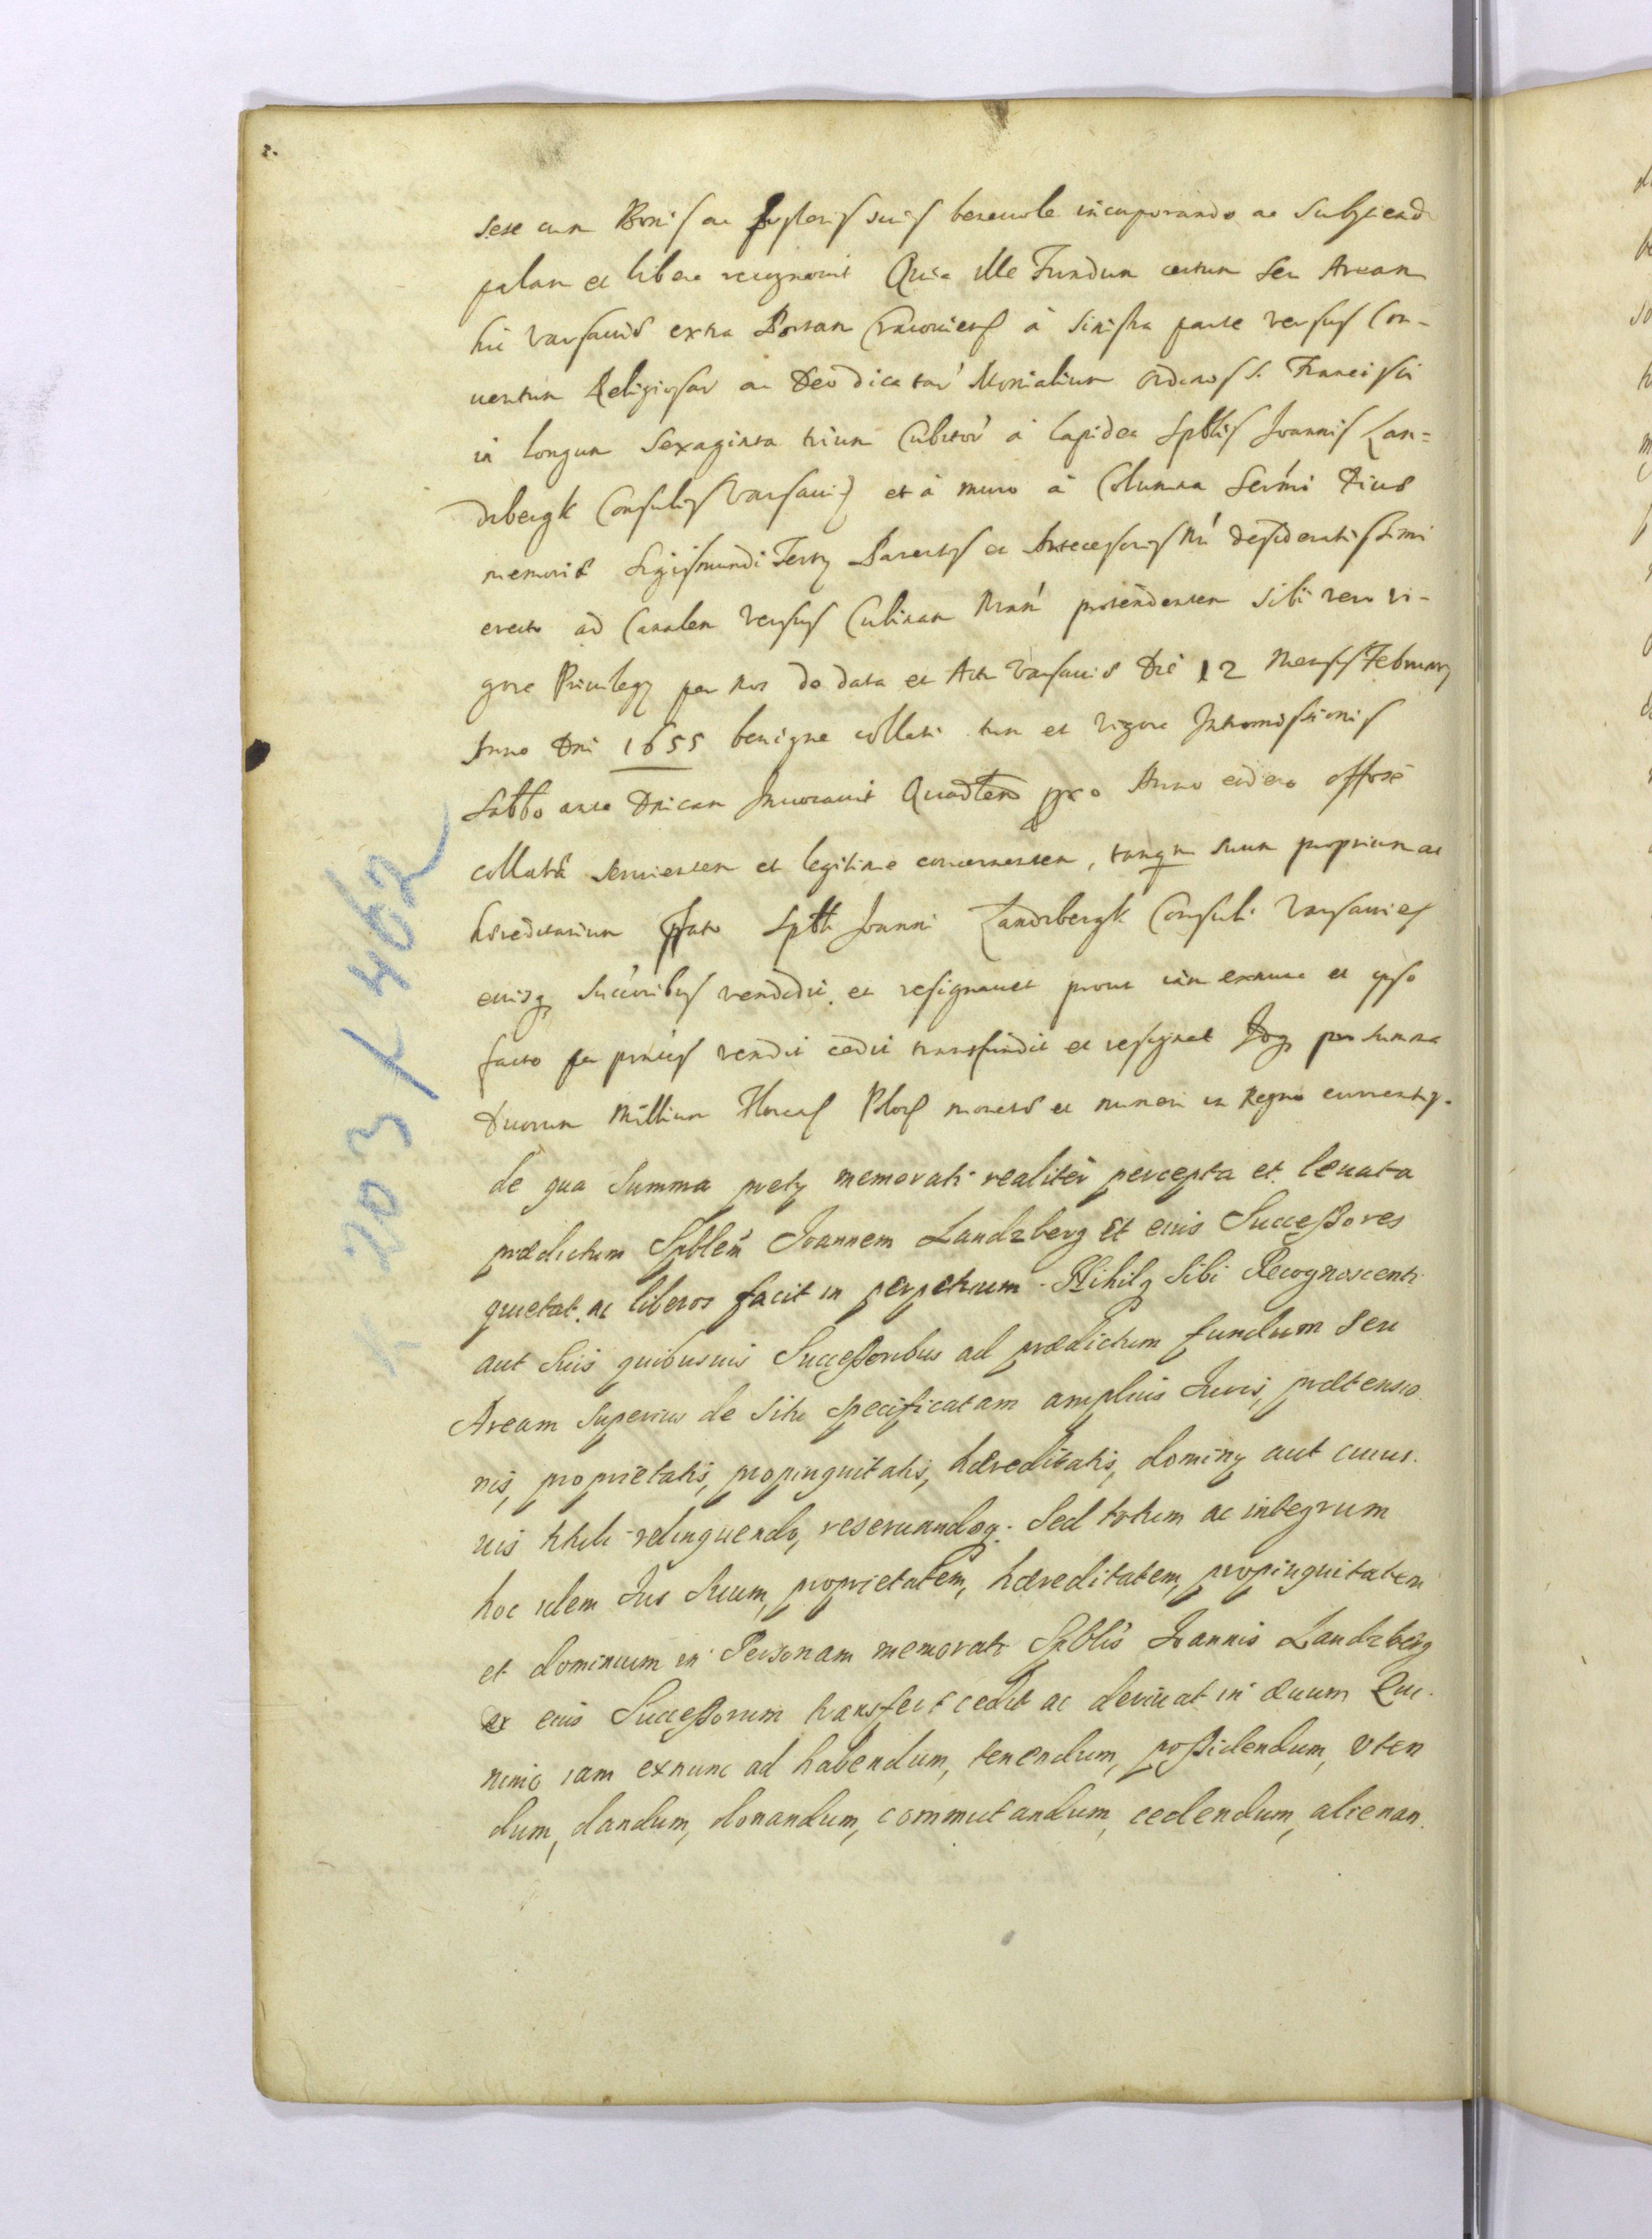 2.
sese cum Bonis ac Susteris suis beneuole incorporando ac Subyciend
palam et libere recognouit Quia ille Fundum certum Seu Aream
hic Varsauiæ extra Portam Cracouiens à Sinistra parte versus Con-
uentum Religiosar ac Deo dicatar Monialium Ordinis S. Francisci
in longum Sexaginta trium Cubitor à lapidea Spblis Joannis Lan=
dzbergk Consulis Varsauien et à muro à Columna Sermi Diuæ
memoriæ Sigismundi Terty Parentis et Antecessoris Nri desideratissimi
erecto ad Canalem versus Culinam Nram protendentem Sibi vero vi-
gore Priuilegy per Nos de data et Actu Varsauiæ Die 12 Mensis February
Anno Dni 1655 benigne collati tum et vigore Intromissionis
Sabbo ante Dnicam Inuocauit Quadlem pro Anno eodem
collatæ Seruientem et legitime concernentem, tanqm suum proprium ac
hæreditarium pfato Spbli Joanni Landzbergk Consuli Varsauien
eiusq Succribus vendidit et resignauit prout iam exnunc et ipso
facto per pntes vendit cedit transfundit et resignat Idq pro Summa
Duorum Millium Floren Plor monetæ et numeri in Regno currentis.
de qua Summa prety memorati realiter percepta et leuata
prædictum Spblem Joannem Landzberg et eius Successores
quietat ac liberos facit in perpetuum. Nihilq Sibi Recognoscenti
aut Suis quibusuis Successoribus ad prædictum fundum Seu
Aream Superius de Situ Specificatam amplius Iuris, prætensio
nis, proprietatis, propinquitatis, hæreditatis, dominy aut cuius.
uis tituli relinquendo, reseruandoq. Sed totum ac integrum
hoc idem Ius Suum, proprietatem, hæreditatem, propinquitatem
et dominium in Personam memorati Spblis Joannis Landzberg
et eius Successorum transfert cedit ac deriuat in æuum Qui.
nimo iam exnunc ad habendum, tenendum, possidendum, vten
dum, dandum, donandum, commutandum, cedendum, alienan.
K 203 / 462